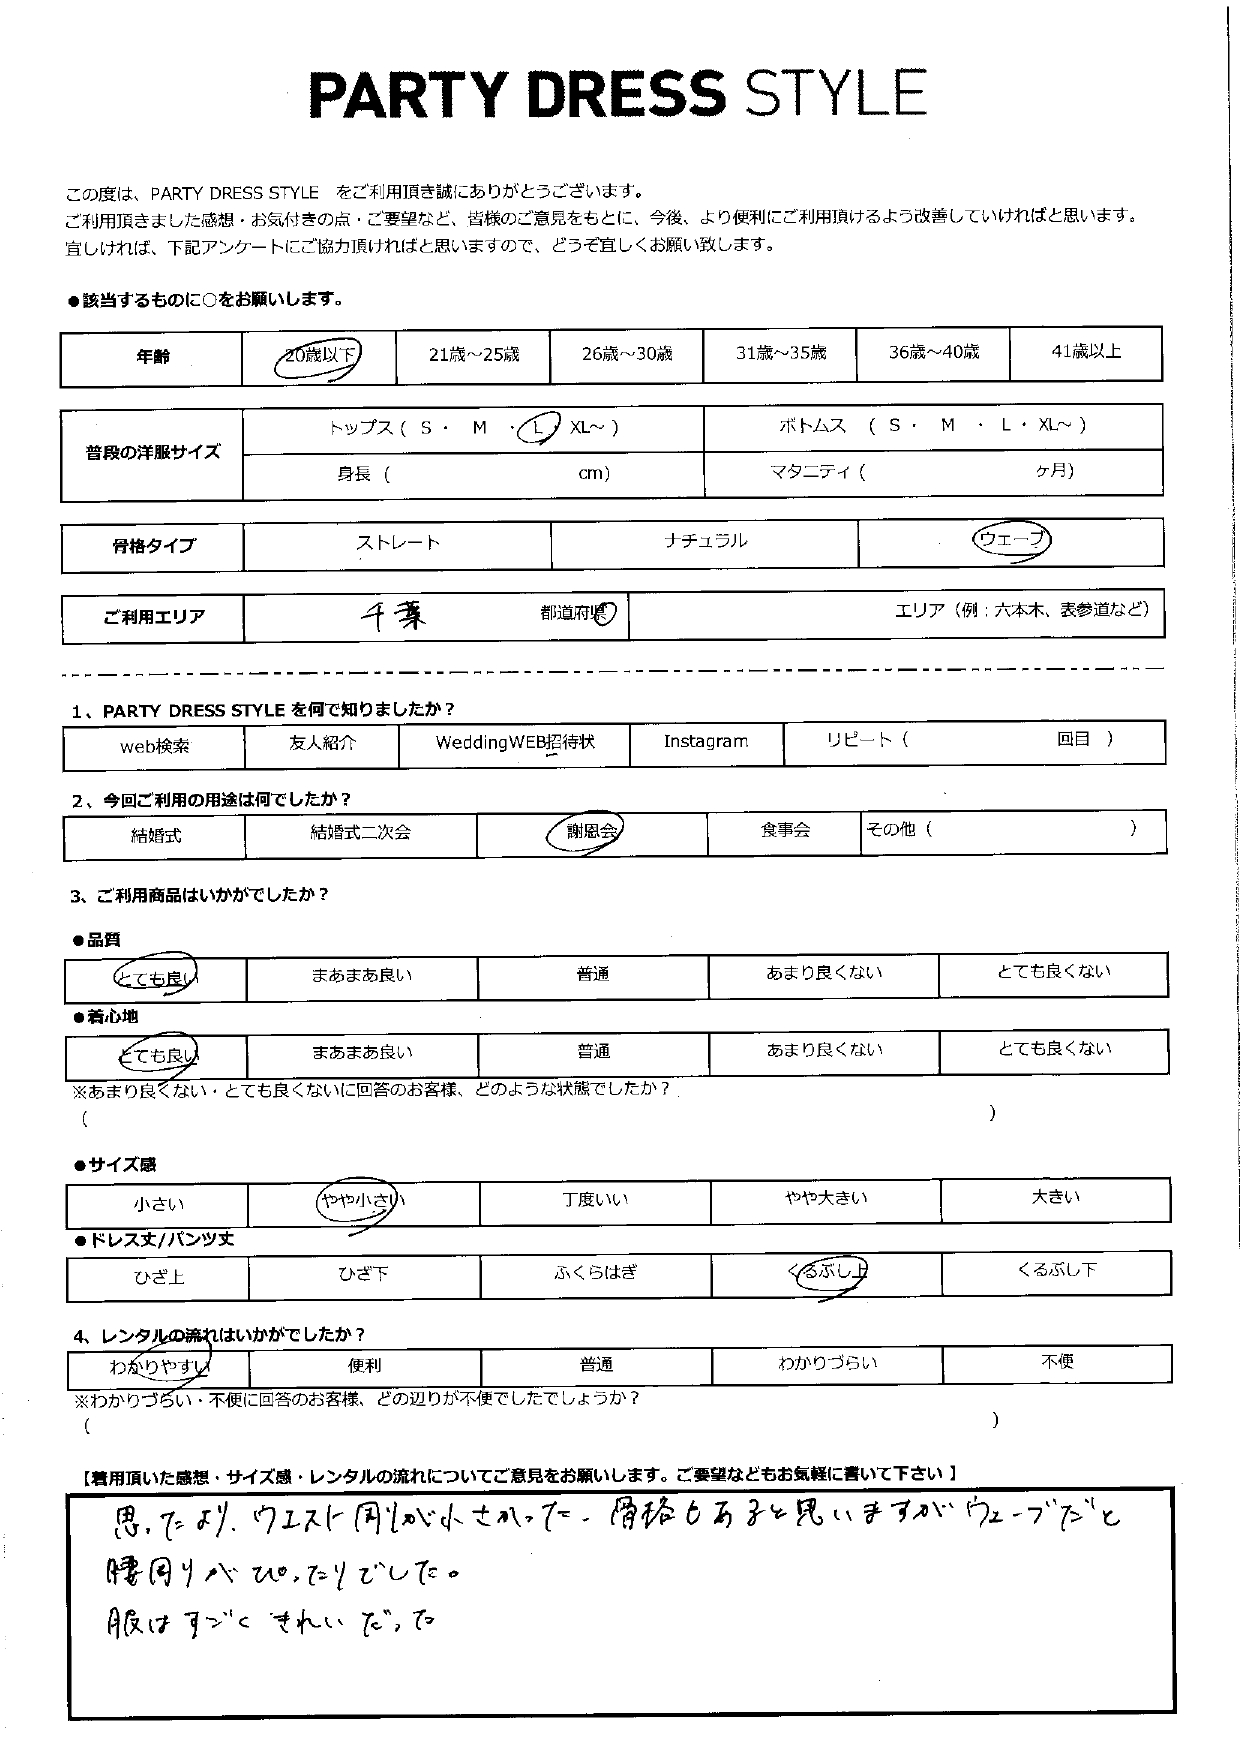 PARTY DRESS STYLE
この度は、PARTY DRESS STYLE をご利用頂き誠にありがとうございます。
ご利用頂きました感想・お気付きの点・ご要望など、皆様のご意見をもとに、今後、より便利にご利用頂けるよう改善していければと思います。
宜しければ、下記アンケートにご協力頂ければと思いますので、どうぞ宜しくお願い致します。
●該当するものに○をお願いします。
年齢 20歳以下 21歳～25歳 26歳～30歳 31歳～35歳 36歳～40歳 41歳以上
普段の洋服サイズ
トップス ( S ・ M ・ L XL～ ) ボトムス ( S ・ M ・ L ・ XL～ )
身長 ( cm) マタニティ ( ヶ月)
骨格タイプ ストレート ナチュラル ウェーブ
ご利用エリア 千葉 都道府県 エリア（例：六本木、表参道など）
1、PARTY DRESS STYLE を何で知りましたか？
web検索 友人紹介 WeddingWEB招待状 Instagram リピート ( 回目 )
2、今回ご利用の用途は何でしたか？
結婚式 結婚式二次会 謝恩会 食事会 その他 ( )
3、ご利用商品はいかがでしたか？
●品質
とても良い まあまあ良い 普通 あまり良くない とても良くない
●着心地
とても良い まあまあ良い 普通 あまり良くない とても良くない
※あまり良くない・とても良くないに回答のお客様、どのような状態でしたか？
( )
●サイズ感
小さい やや小さい 丁度いい やや大きい 大きい
●ドレス丈/パンツ丈
ひざ上 ひざ下 ふくらはぎ くるぶし上 くるぶし下
4、レンタルの流れはいかがでしたか？
わかりやすい 便利 普通 わかりづらい 不便
※わかりづらい・不便に回答のお客様、どの辺りが不便でしたでしょうか？
( )
【着用頂いた感想・サイズ感・レンタルの流れについてご意見をお願いします。ご要望などもお気軽に書いて下さい 】
思ったより、ウエスト周りが小さかった。骨格もあると思いますがウェーブだと
腰周りがぴったりでした。
服はすごくきれいだった